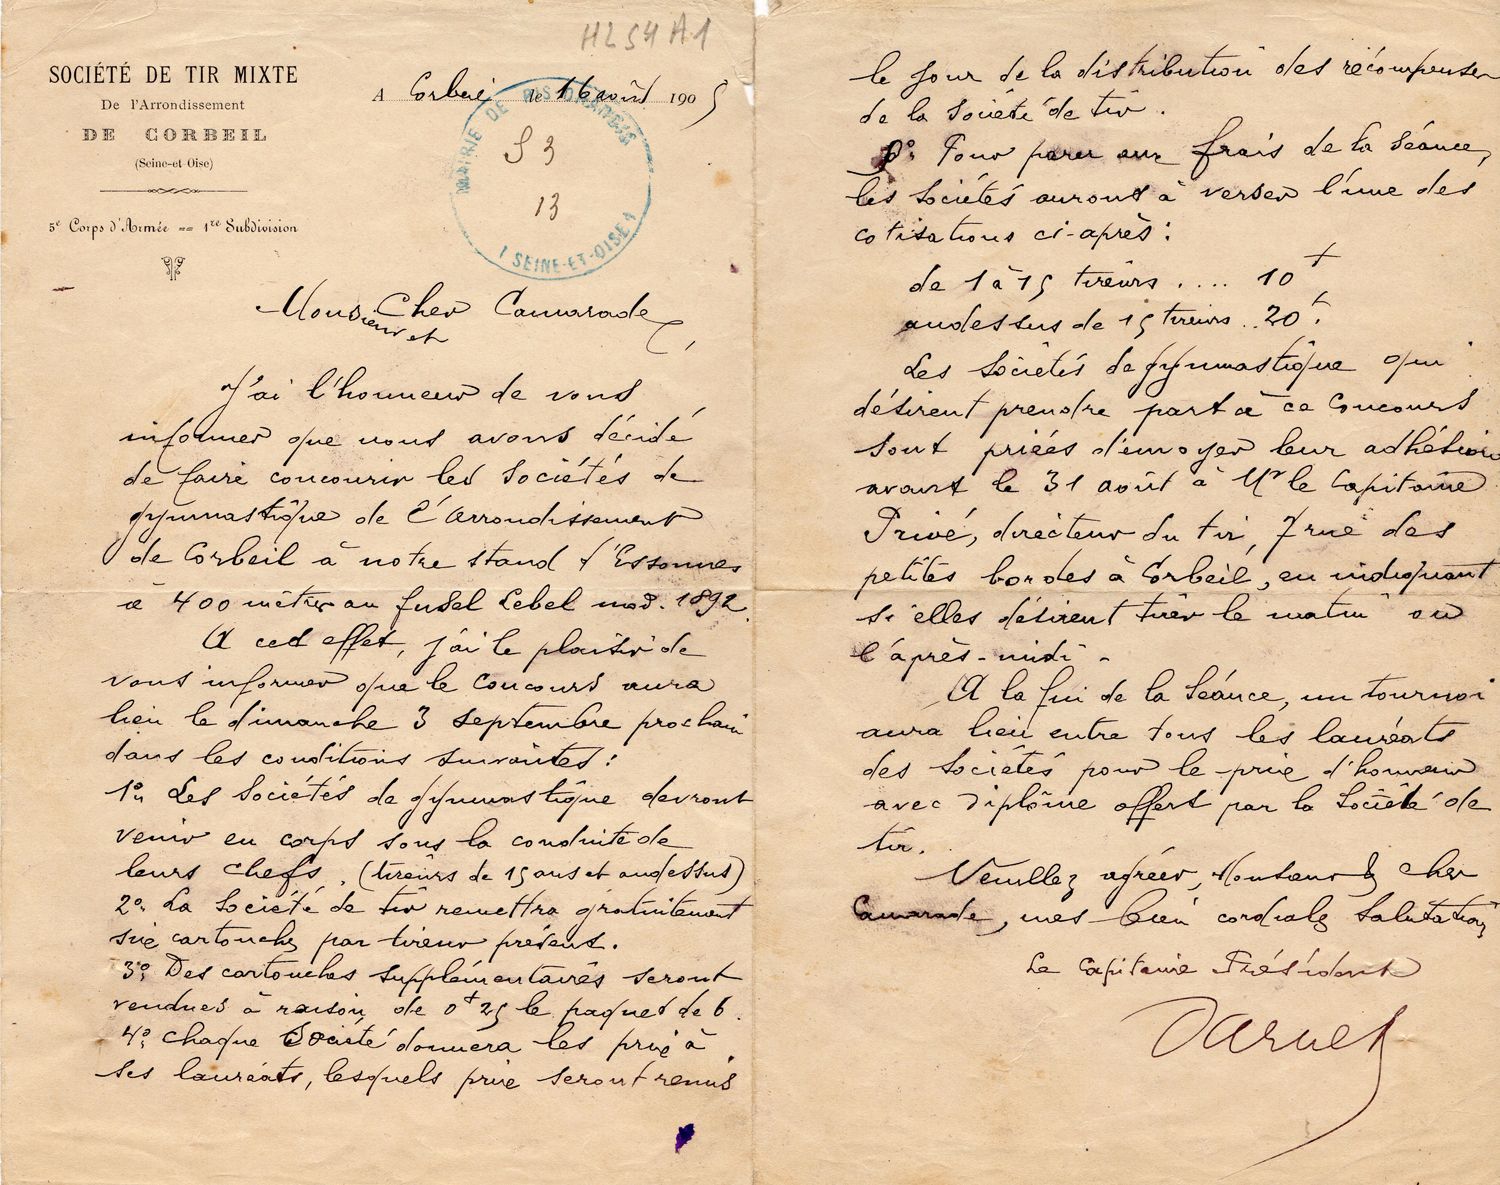 HL54A1
SOCIÉTÉ DE TIR MIXTE
De l'Arrondissement
DE CORBEIL
(Seine-et-Oise)
5e Corps d'Armée == 1re Subdivision
A Corbeil le 16 août 1905
MAIRIE DE RIS-ORANGIS
S 3
13
( SEINE-ET-OISE )
Monsieur et Cher Camarade,
J'ai l'honneur de vous
informer que nous avons décidé
de faire concourir les Sociétés de
gymnastique de l'Arrondissement
de Corbeil à notre stand d'Essonnes
à 400 mètres au fusil Lebel mod. 1892.
A cet effet, j'ai le plaisir de
vous informer que le Concours aura
lieu le dimanche 3 septembre prochain
dans les conditions suivantes :
1o Les Sociétés de gymnastique devront
venir en corps sous la conduite de
leurs chefs. (tireurs de 15 ans et audessus)
2o La Société de tir remettra gratuitement
six cartouches par tireur présent.
3o Des cartouches supplémentaires seront
vendues à raison de 0f25 le paquet de 6.
4o Chaque Société donnera les prix à
ses lauréats, lesquels prix seront remis
le jour de la distribution des récompenses
de la Société de tir.
Pour parer aux frais de la Séance,
les Sociétés auront à verser l'une des
cotisations ci-après :
de 1 à 15 tireurs .... 10f
audessus de 15 tireurs .. 20f.
Les Sociétés de gymnastique qui
désirent prendre part à ce Concours
sont priées d'envoyer leur adhésion
avant le 31 août à Mr le Capitaine
Privé, directeur du tir, 7 rue des
petites bordes à Corbeil, en indiquant
si elles désirent tirer le matin ou
l'après-midi.
A la fin de la Séance, un tournoi
aura lieu entre tous les lauréats
des Sociétés pour le prix d'honneur
avec diplôme offert par la Société de
tir.
Veuillez agréer, Monsieur & Cher
Camarade, mes bien cordiales Salutations
Le Capitaine Président